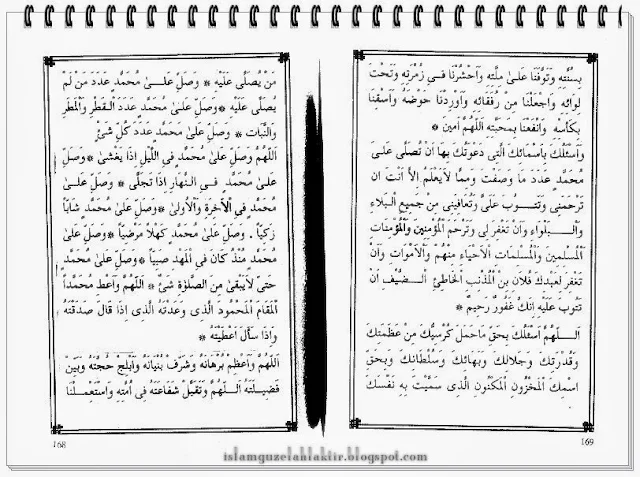 مَنْ يُصَلَّى عَلَيْهِ * وَصَلِّ عَلَىٰ مُحَمَّدٍ عَدَدَ مَنْ لَمْ
يُصَلَّى عَلَيْهِ * وَصَلِّ عَلَىٰ مُحَمَّدٍ عَدَدَ الْقَطْرِ وَالْمَطَرِ
وَالنَّبَاتِ * وَصَلِّ عَلَىٰ مُحَمَّدٍ عَدَدَ كُلِّ شَىْءٍ
اَللّٰهُمَّ وَصَلِّ عَلَىٰ مُحَمَّدٍ فِى اللَّيْلِ اِذَا يَغْشَىٰ * وَصَلِّ
عَلَىٰ مُحَمَّدٍ فِى النَّهَارِ اِذَا تَجَلَّىٰ * وَصَلِّ عَلَىٰ
مُحَمَّدٍ فِى الْاٰخِرَةِ وَالْاُولَىٰ * وَصَلِّ عَلَىٰ مُحَمَّدٍ شَابًّا
زَكِيًّا . وَصَلِّ عَلَىٰ مُحَمَّدٍ كَهْلًا مَرْضِيًّا * وَصَلِّ عَلَىٰ
مُحَمَّدٍ مُنْذُ كَانَ فِى الْمَهْدِ صَبِيًّا * وَصَلِّ عَلَىٰ مُحَمَّدٍ
حَتَّىٰ لَا يَبْقَىٰ مِنَ الصَّلٰوةِ شَىْءٌ * اَللّٰهُمَّ وَاَعْطِ مُحَمَّدًا
الْمَقَامَ الْمَحْمُودَ الَّذِى وَعَدْتَهُ الَّذِى اِذَا قَالَ صَدَّقْتَهُ
وَاِذَا سَاَلَ اَعْطَيْتَهُ *
اَللّٰهُمَّ وَاَعْظِمْ بُرْهَانَهُ وَشَرِّفْ بُنْيَانَهُ وَاَبْلِجْ حُجَّتَهُ وَبَيِّنْ
فَضِيلَتَهُ اَللّٰهُمَّ وَتَقَبَّلْ شَفَاعَتَهُ فِى اُمَّتِهِ وَاسْتَعْمِلْنَا
168
بِسُنَّتِهِ وَتَوَفَّنَا عَلَىٰ مِلَّتِهِ وَاحْشُرْنَا فِى زُمْرَتِهِ وَتَحْتَ
لِوَائِهِ وَاجْعَلْنَا مِنْ رُفَقَائِهِ وَاَوْرِدْنَا حَوْضَهُ وَاسْقِنَا
بِكَأْسِهِ وَانْفَعْنَا بِمَحَبَّتِهِ اَللّٰهُمَّ اٰمِينَ *
وَاَسْئَلُكَ بِاَسْمَائِكَ الَّتِى دَعَوْتُكَ بِهَا اَنْ تُصَلِّىَ عَلَىٰ
مُحَمَّدٍ عَدَدَ مَا وَصَفْتُ وَمِمَّا لَا يَعْلَمُ اِلَّا اَنْتَ اَنْ
تَرْحَمَنِى وَتَتُوبَ عَلَىَّ وَتُعَافِيَنِى مِنْ جَمِيعِ الْبَلَاءِ
وَالْبَلْوَاءِ وَاَنْ تَغْفِرَ لِى وَتَرْحَمَ الْمُؤْمِنِينَ وَالْمُؤْمِنَاتِ
اَلْمُسْلِمِينَ وَالْمُسْلِمَاتِ اَلْاَحْيَاءِ مِنْهُمْ وَالْاَمْوَاتِ وَاَنْ
تَغْفِرَ لِعَبْدِكَ فُلَانِ بْنِ الْمُذْنِبِ الْخَاطِئِ الضَّعِيفِ اَنْ
تَتُوبَ عَلَيْهِ اِنَّكَ غَفُورٌ رَحِيمٌ *
اَللّٰهُمَّ اَسْئَلُكَ بِحَقِّ مَا حَمَلَ كُرْسِيُّكَ مِنْ عَظَمَتِكَ
وَقُدْرَتِكَ وَجَلَالِكَ وَبَهَائِكَ وَسُلْطَانِكَ وَبِحَقِّ
اسْمِكَ الْمَخْزُونِ الْمَكْنُونِ الَّذِى سَمَّيْتَ بِهِ نَفْسَكَ
169
islamguzelahlaktir.blogspot.com